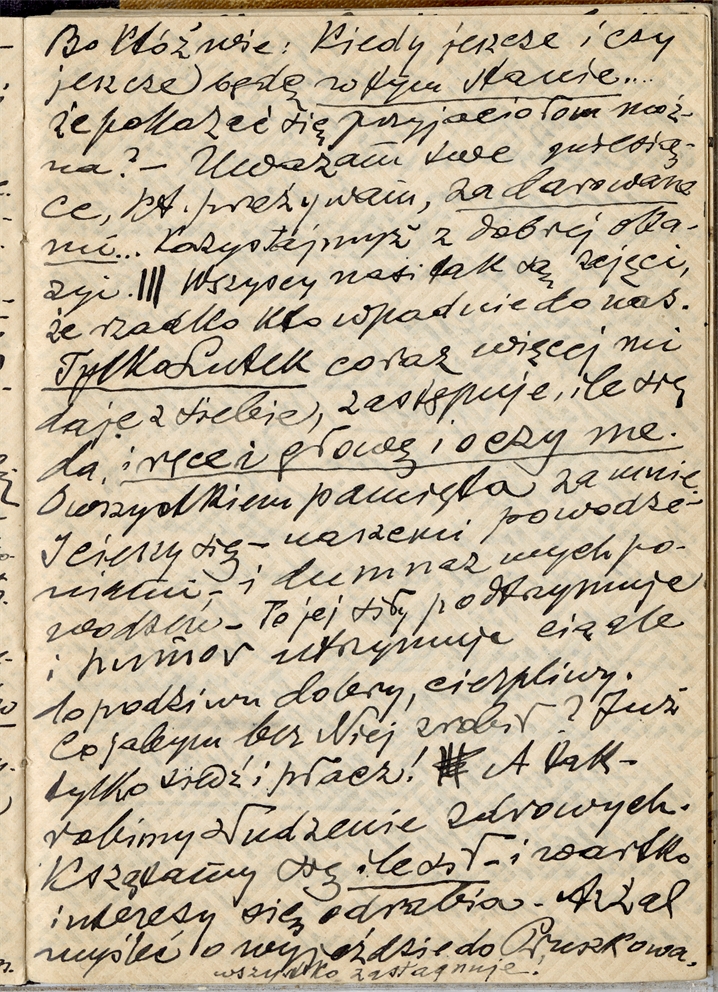 Bo któż wie: kiedy jeszcze i czy
jeszcze będę w tym stanie...
że pokazać się przyjaciołom moż-
na? – Uważam swe miesią-
ce, kt. przeżywam, za darowane
mi... Kożystajmyż z dobrej oka-
zyi. ||| Wszyscy nasi tak są zajęci,
że rzadko kto wpadnie do nas.
Tylko Lutek coraz więcej mi
daje z siebie, zastępuje, ile się
da, i ręce i głowę i oczy me.
O wszystkiem pamięta za mnie.
I cieszy się – naszemi powodze-
niami – i dumna z mych po-
wodzeń – To jej siły podtrzymuje
i humor utrzymuje ciągle
do podziwu dobry, cierpliwy.
Co jabym bez Niej zrobił? Już
tylko siedź i płacz! A tak –
robimy złudzenie zdrowych.
Krzątamy się ile sił – i wartko
interesy się odrabia – Aż żal
myśleć o wyjeździe do Pruszkowa,
wszystko zastagnuje.